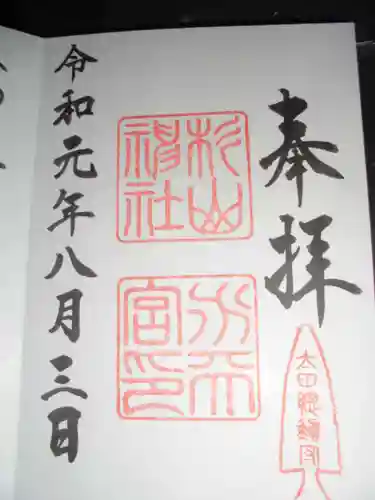 奉拝
太田總鎮守
杉山神社
宮印
令和元年八月三日